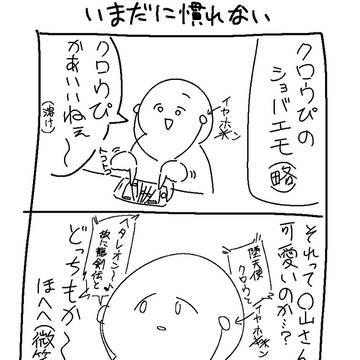 いまだに慣れない
クロウぴの
ショバエモ
略
イヤホン
クロウぴ
かあいいねぇ〜
(溶け)
トコトコ
それって〇山さん
可愛いのか…?
堕天使
クロウと
イヤホン
どっちもか〜
ほへへ(微笑